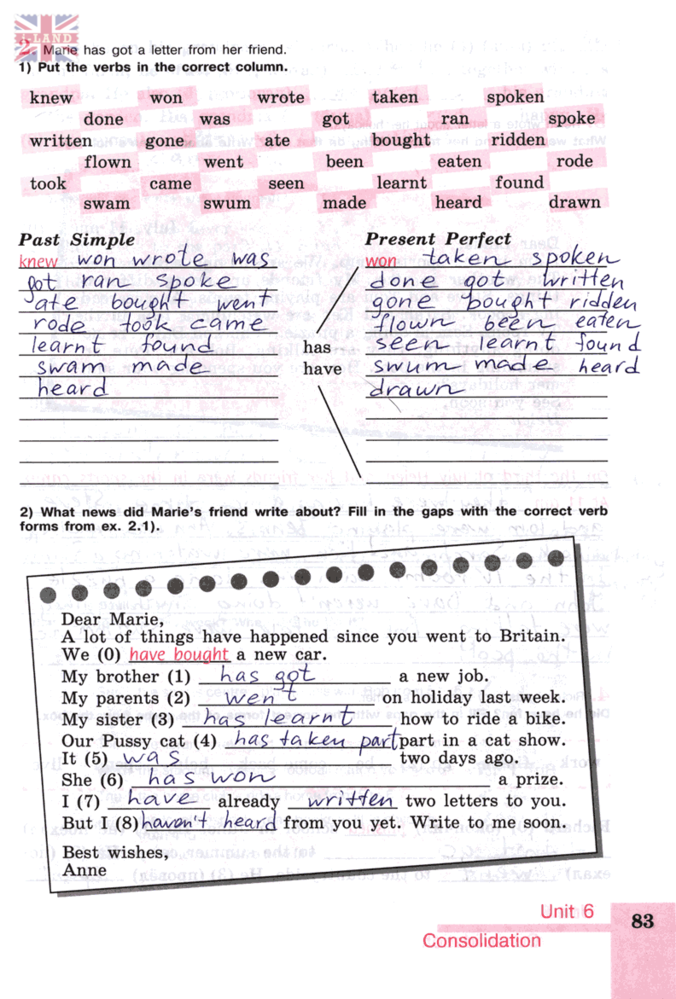 I-LAND
2. Marie has got a letter from her friend.
1) Put the verbs in the correct column.
knew won wrote taken spoken
done was got ran spoke
written gone ate bought ridden
flown went been eaten rode
took came seen learnt found
swam swum made heard drawn
Past Simple
knew won wrote was
got ran spoke
ate bought went
rode took came
learnt found
swam made
heard
has
have
Present Perfect
won taken spoken
done got written
gone bought ridden
flown been eaten
seen learnt found
swum made heard
drawn
2) What news did Marie's friend write about? Fill in the gaps with the correct verb
forms from ex. 2.1).
Dear Marie,
A lot of things have happened since you went to Britain.
We (0) have bought a new car.
My brother (1) has got a new job.
My parents (2) went on holiday last week.
My sister (3) has learnt how to ride a bike.
Our Pussy cat (4) has taken part part in a cat show.
It (5) was two days ago.
She (6) has won a prize.
I (7) have already written two letters to you.
But I (8) haven't heard from you yet. Write to me soon.
Best wishes,
Anne
Unit 6
Consolidation
83